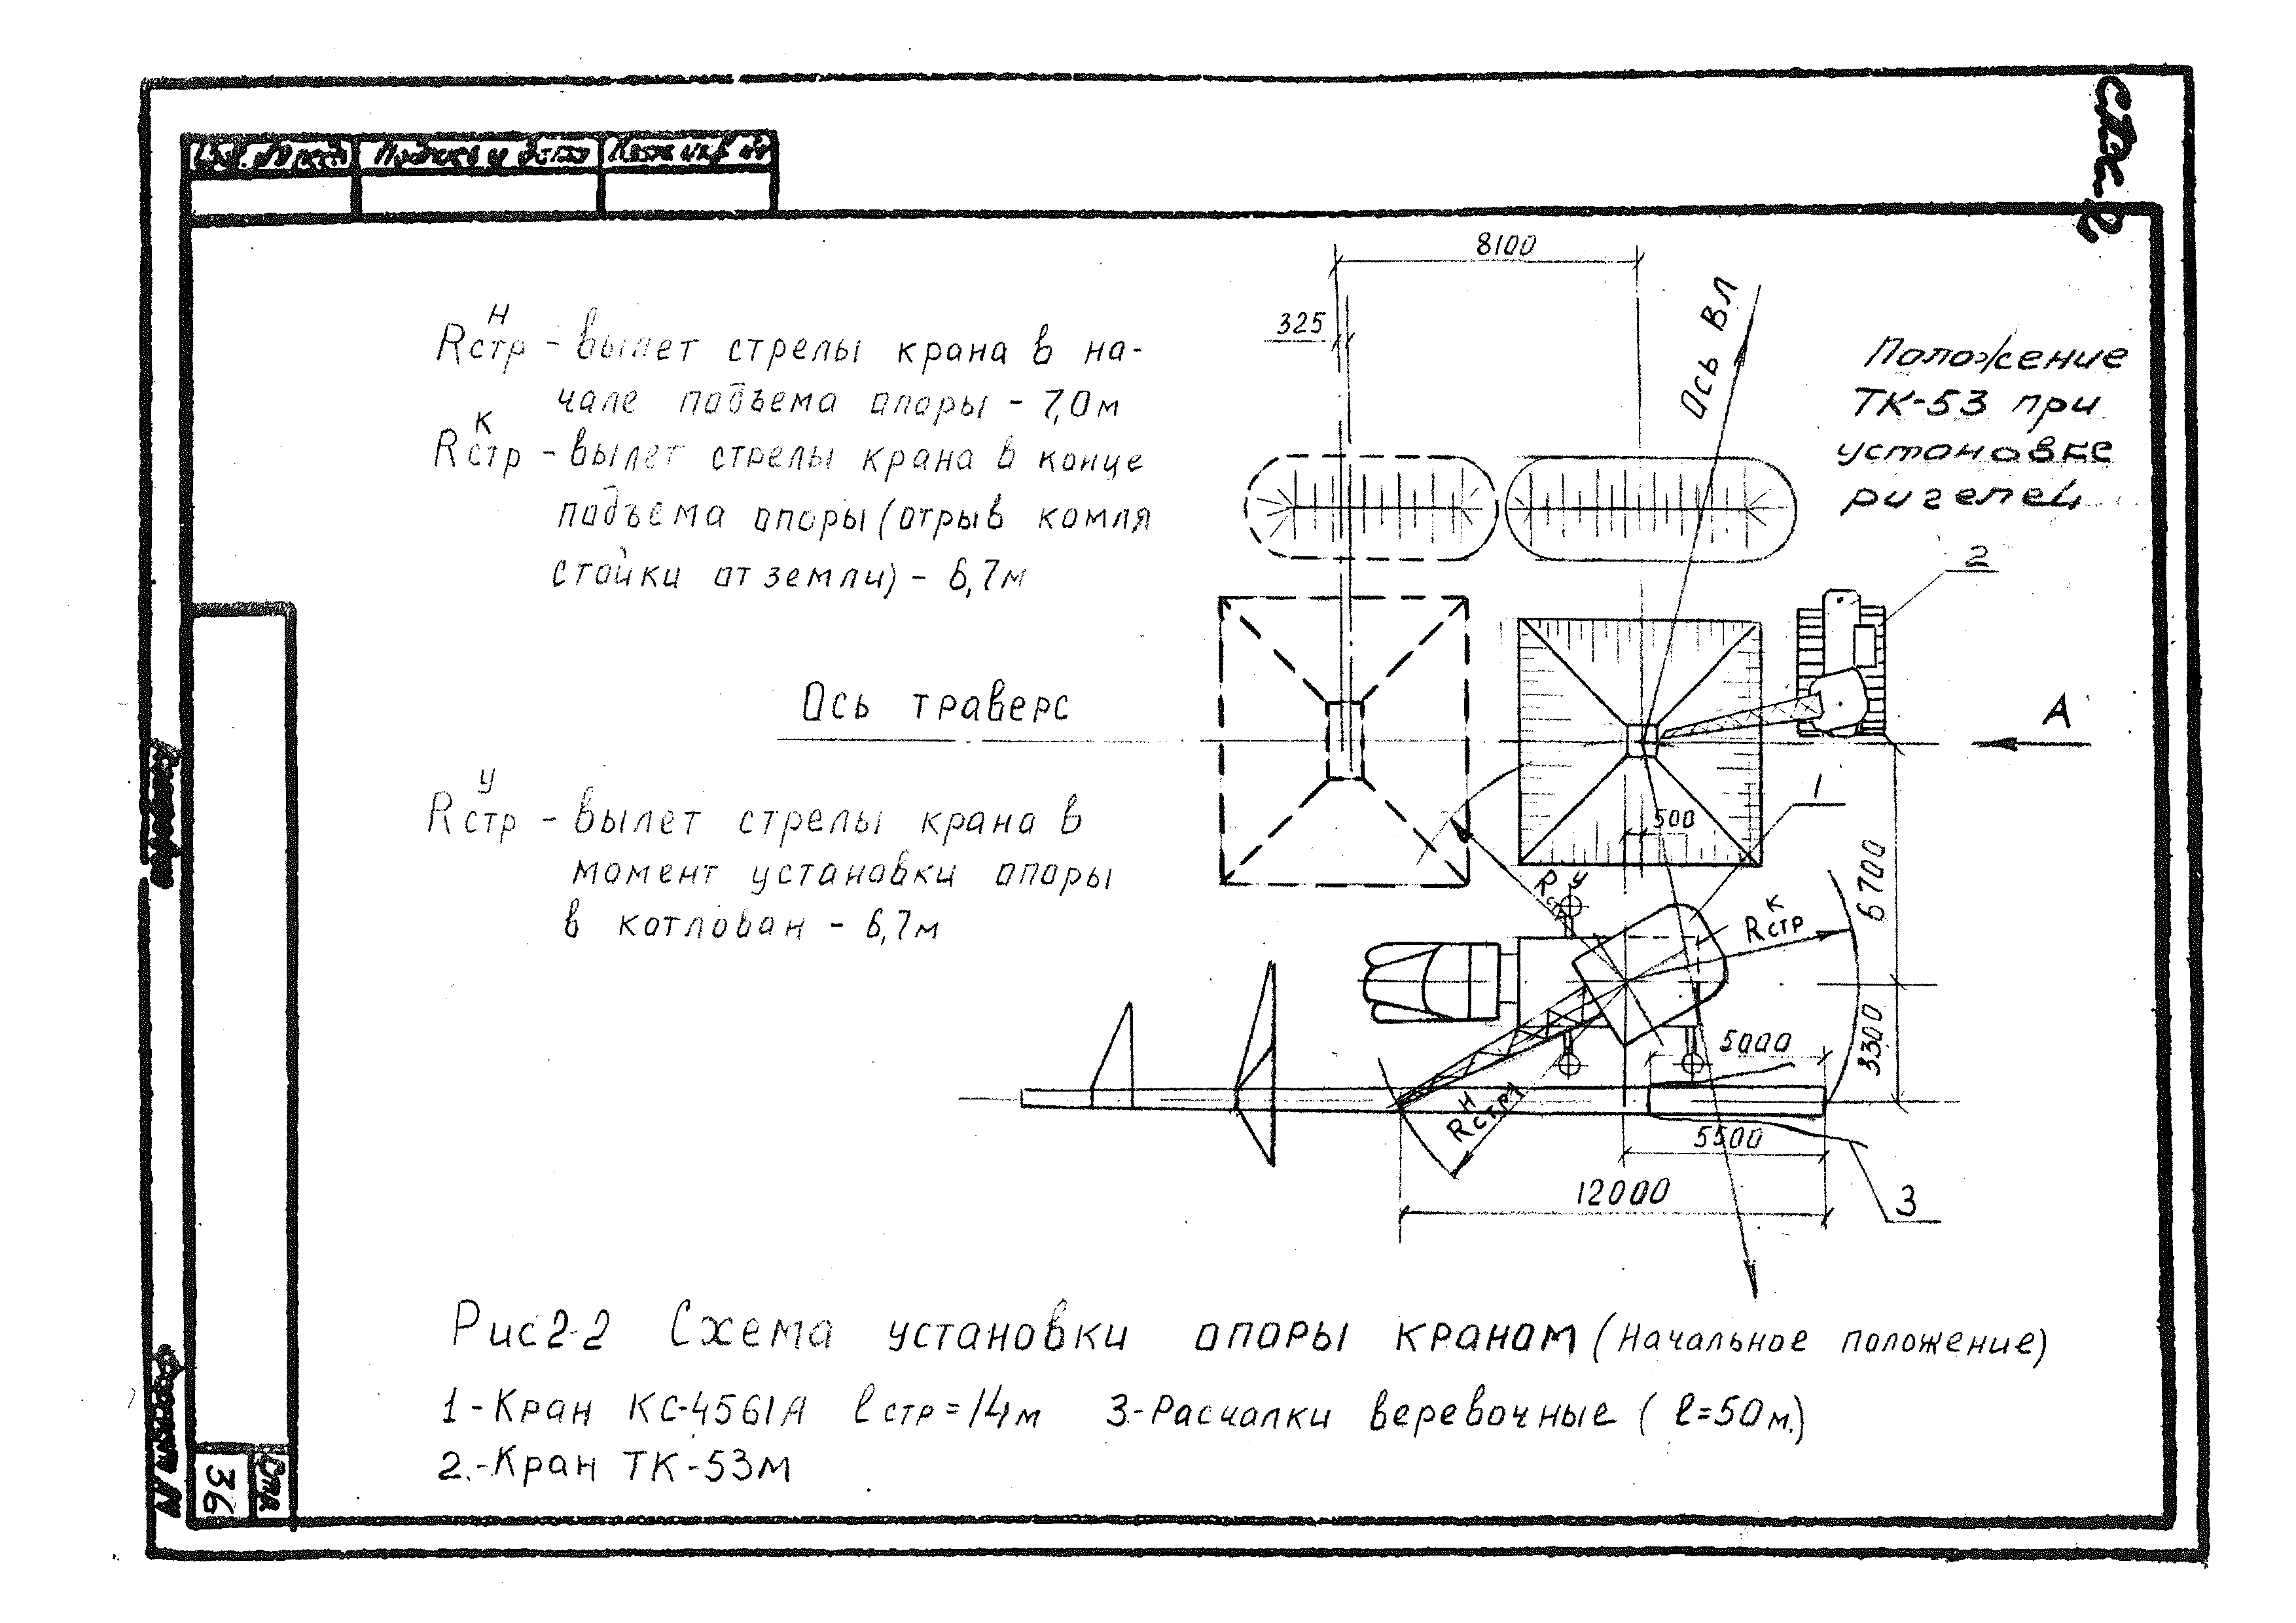 Подпись и дата
8100
Ось ВЛ
325
Rстр н - вылет стрелы крана в на-
чале подъема опоры - 7,0м
Rстр к - вылет стрелы крана в конце
подъема опоры (отрыв комля
стойки от земли) - 6,7м
Положение
ТК-53 при
установке
ригелей
2
Ось траверс
А
1
500
Rстр у - вылет стрелы крана в
момент установки опоры
в котлован - 6,7м
Rстр у
Rстр к
6700
3300
5000
Rстр н
5500
12000
3
Рис 2-2 Схема установки опоры краном (Начальное положение)
1-Кран КС-4561А lстр=14м 3-Расчалки веревочные (l=50м.)
2.-Кран ТК-53м
Стр
36